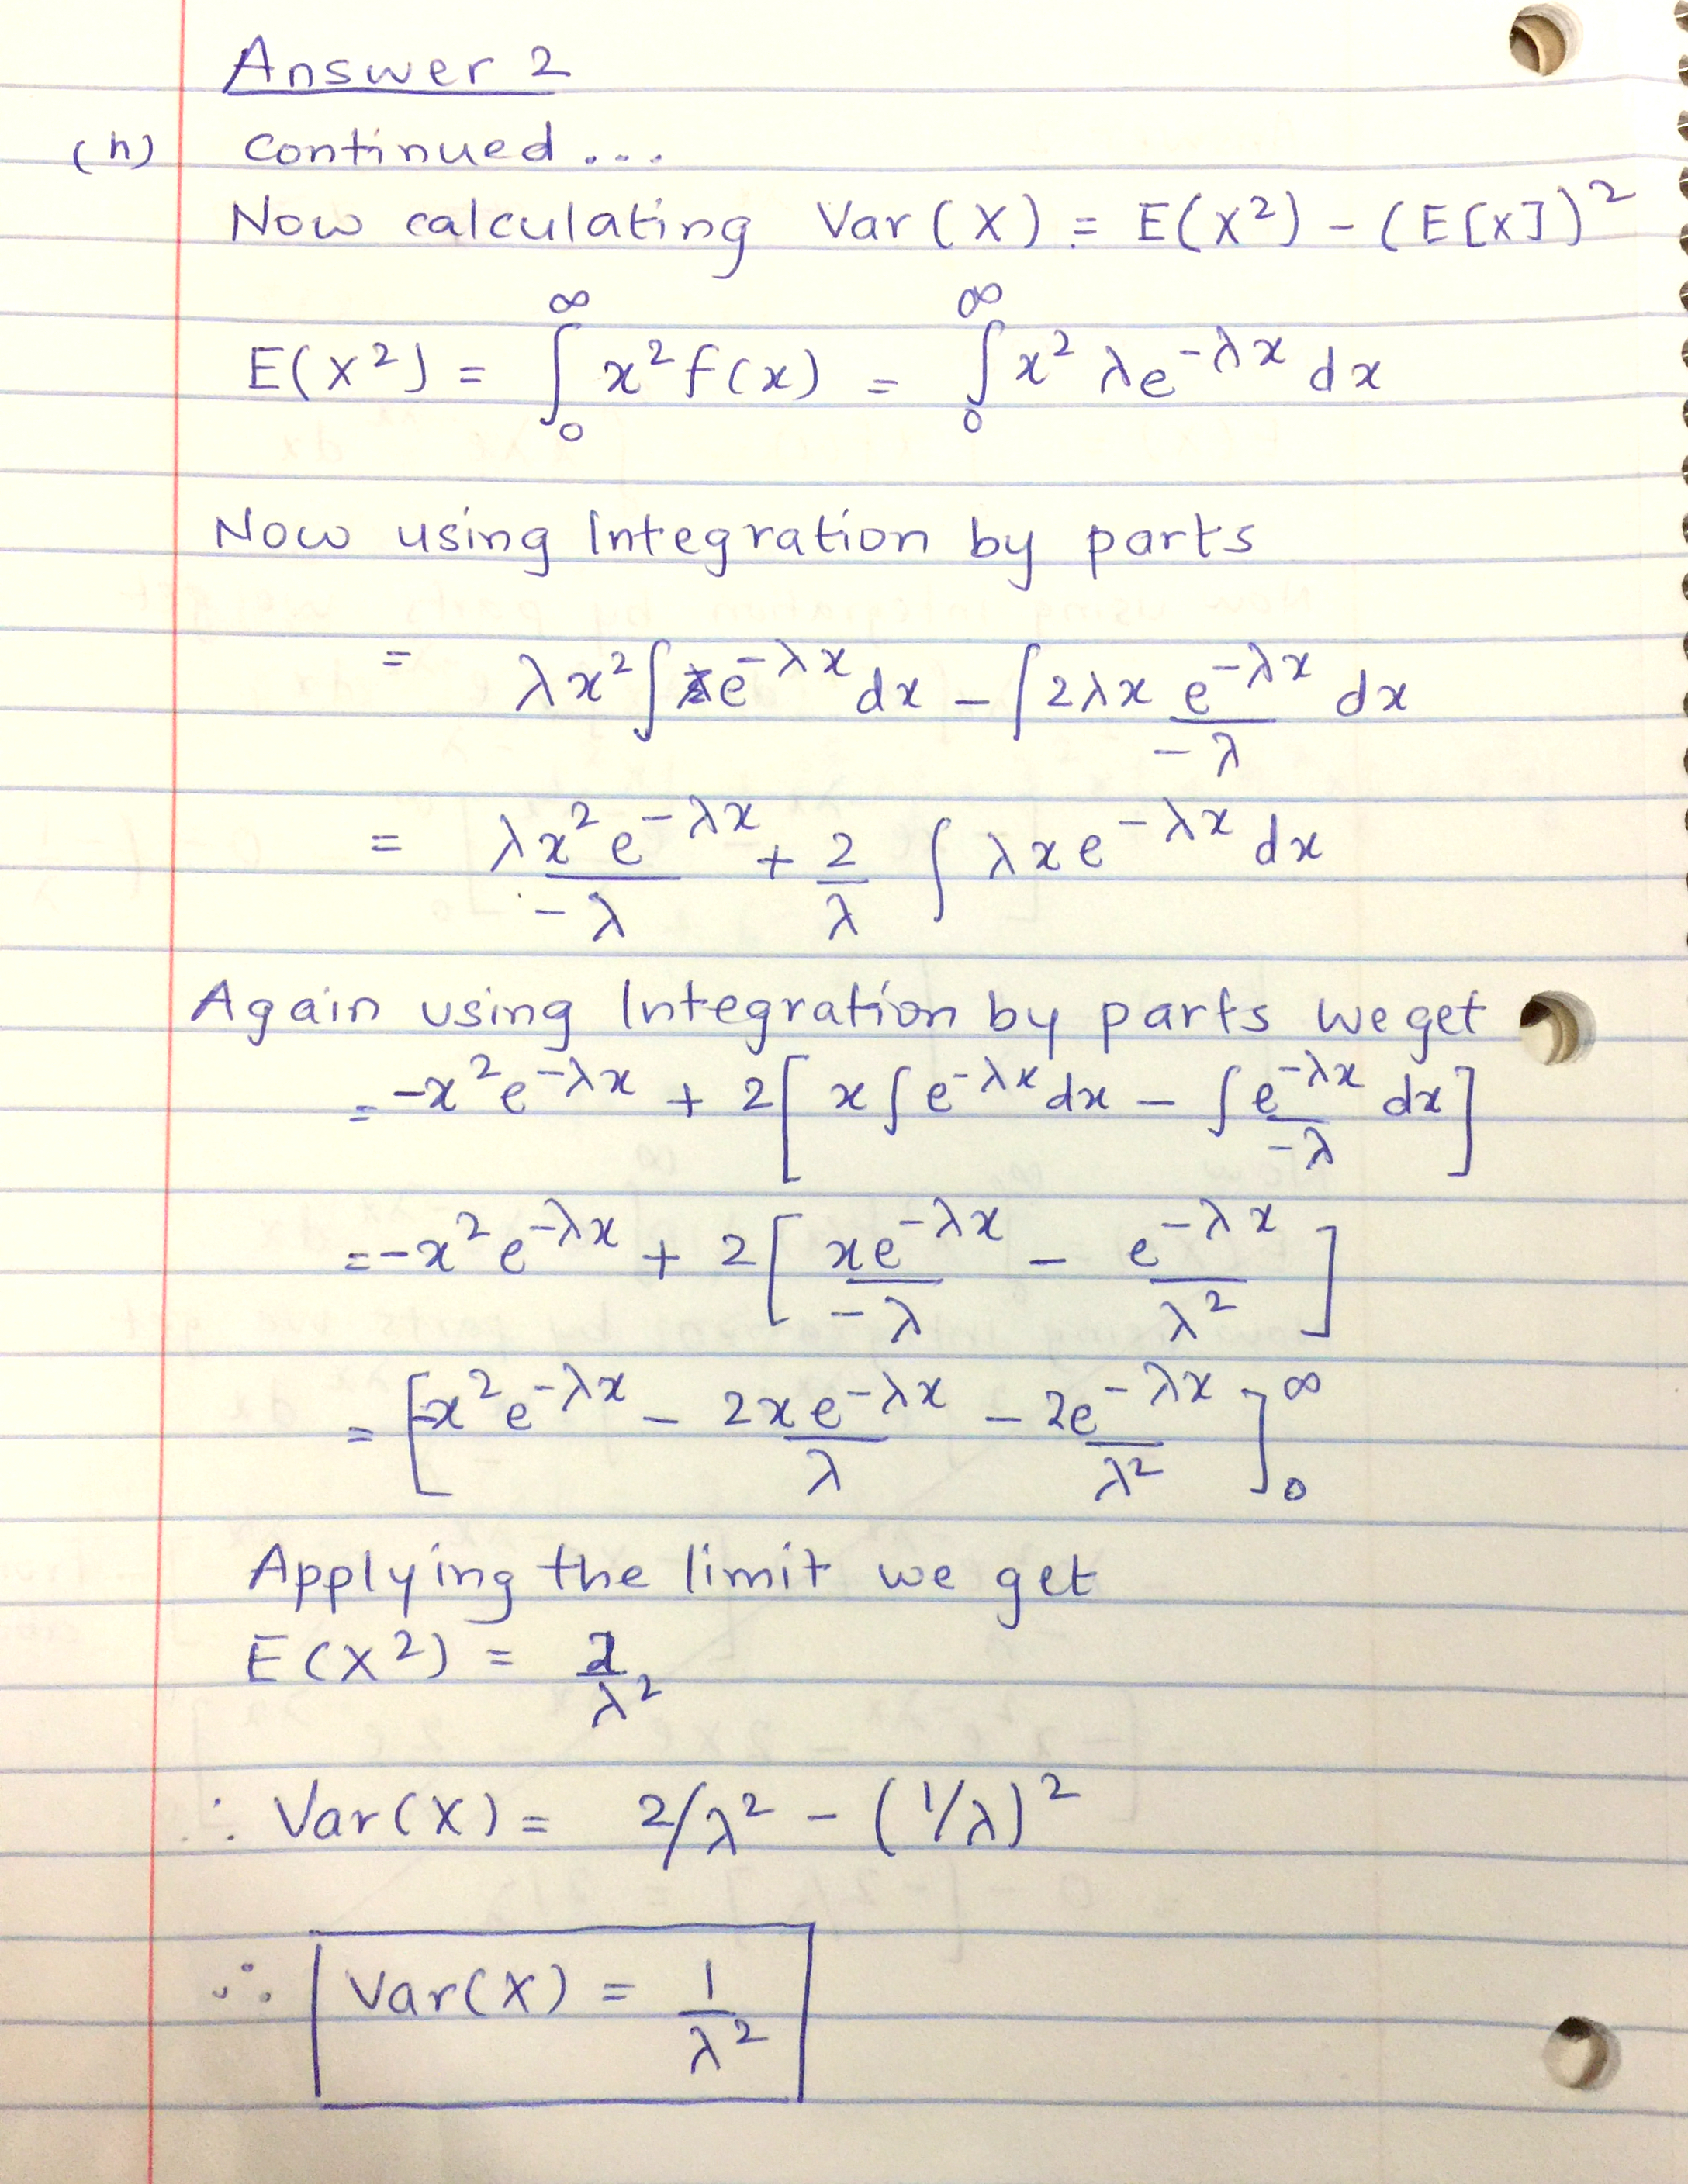 Answer 2
(h) Continued...
Now calculating Var(X) = E(X²) - (E[X])²
E(X²) = ∫₀^∞ x² f(x) = ∫₀^∞ x² λe^(-λx) dx
Now using Integration by parts
= λx² ∫ e^(-λx) dx - ∫ 2λx e^(-λx)/(-λ) dx
= λx² e^(-λx)/(-λ) + 2/λ ∫ λxe^(-λx) dx
Again using Integration by parts we get
= -x² e^(-λx) + 2[ x ∫ e^(-λx) dx - ∫ e^(-λx)/(-λ) dx ]
= -x² e^(-λx) + 2[ xe^(-λx)/(-λ) - e^(-λx)/λ² ]
= [ -x² e^(-λx) - 2xe^(-λx)/λ - 2e^(-λx)/λ² ]₀^∞
Applying the limit we get
E(X²) = 2/λ²
∴ Var(X) = 2/λ² - (1/λ)²
∴ Var(X) = 1/λ²